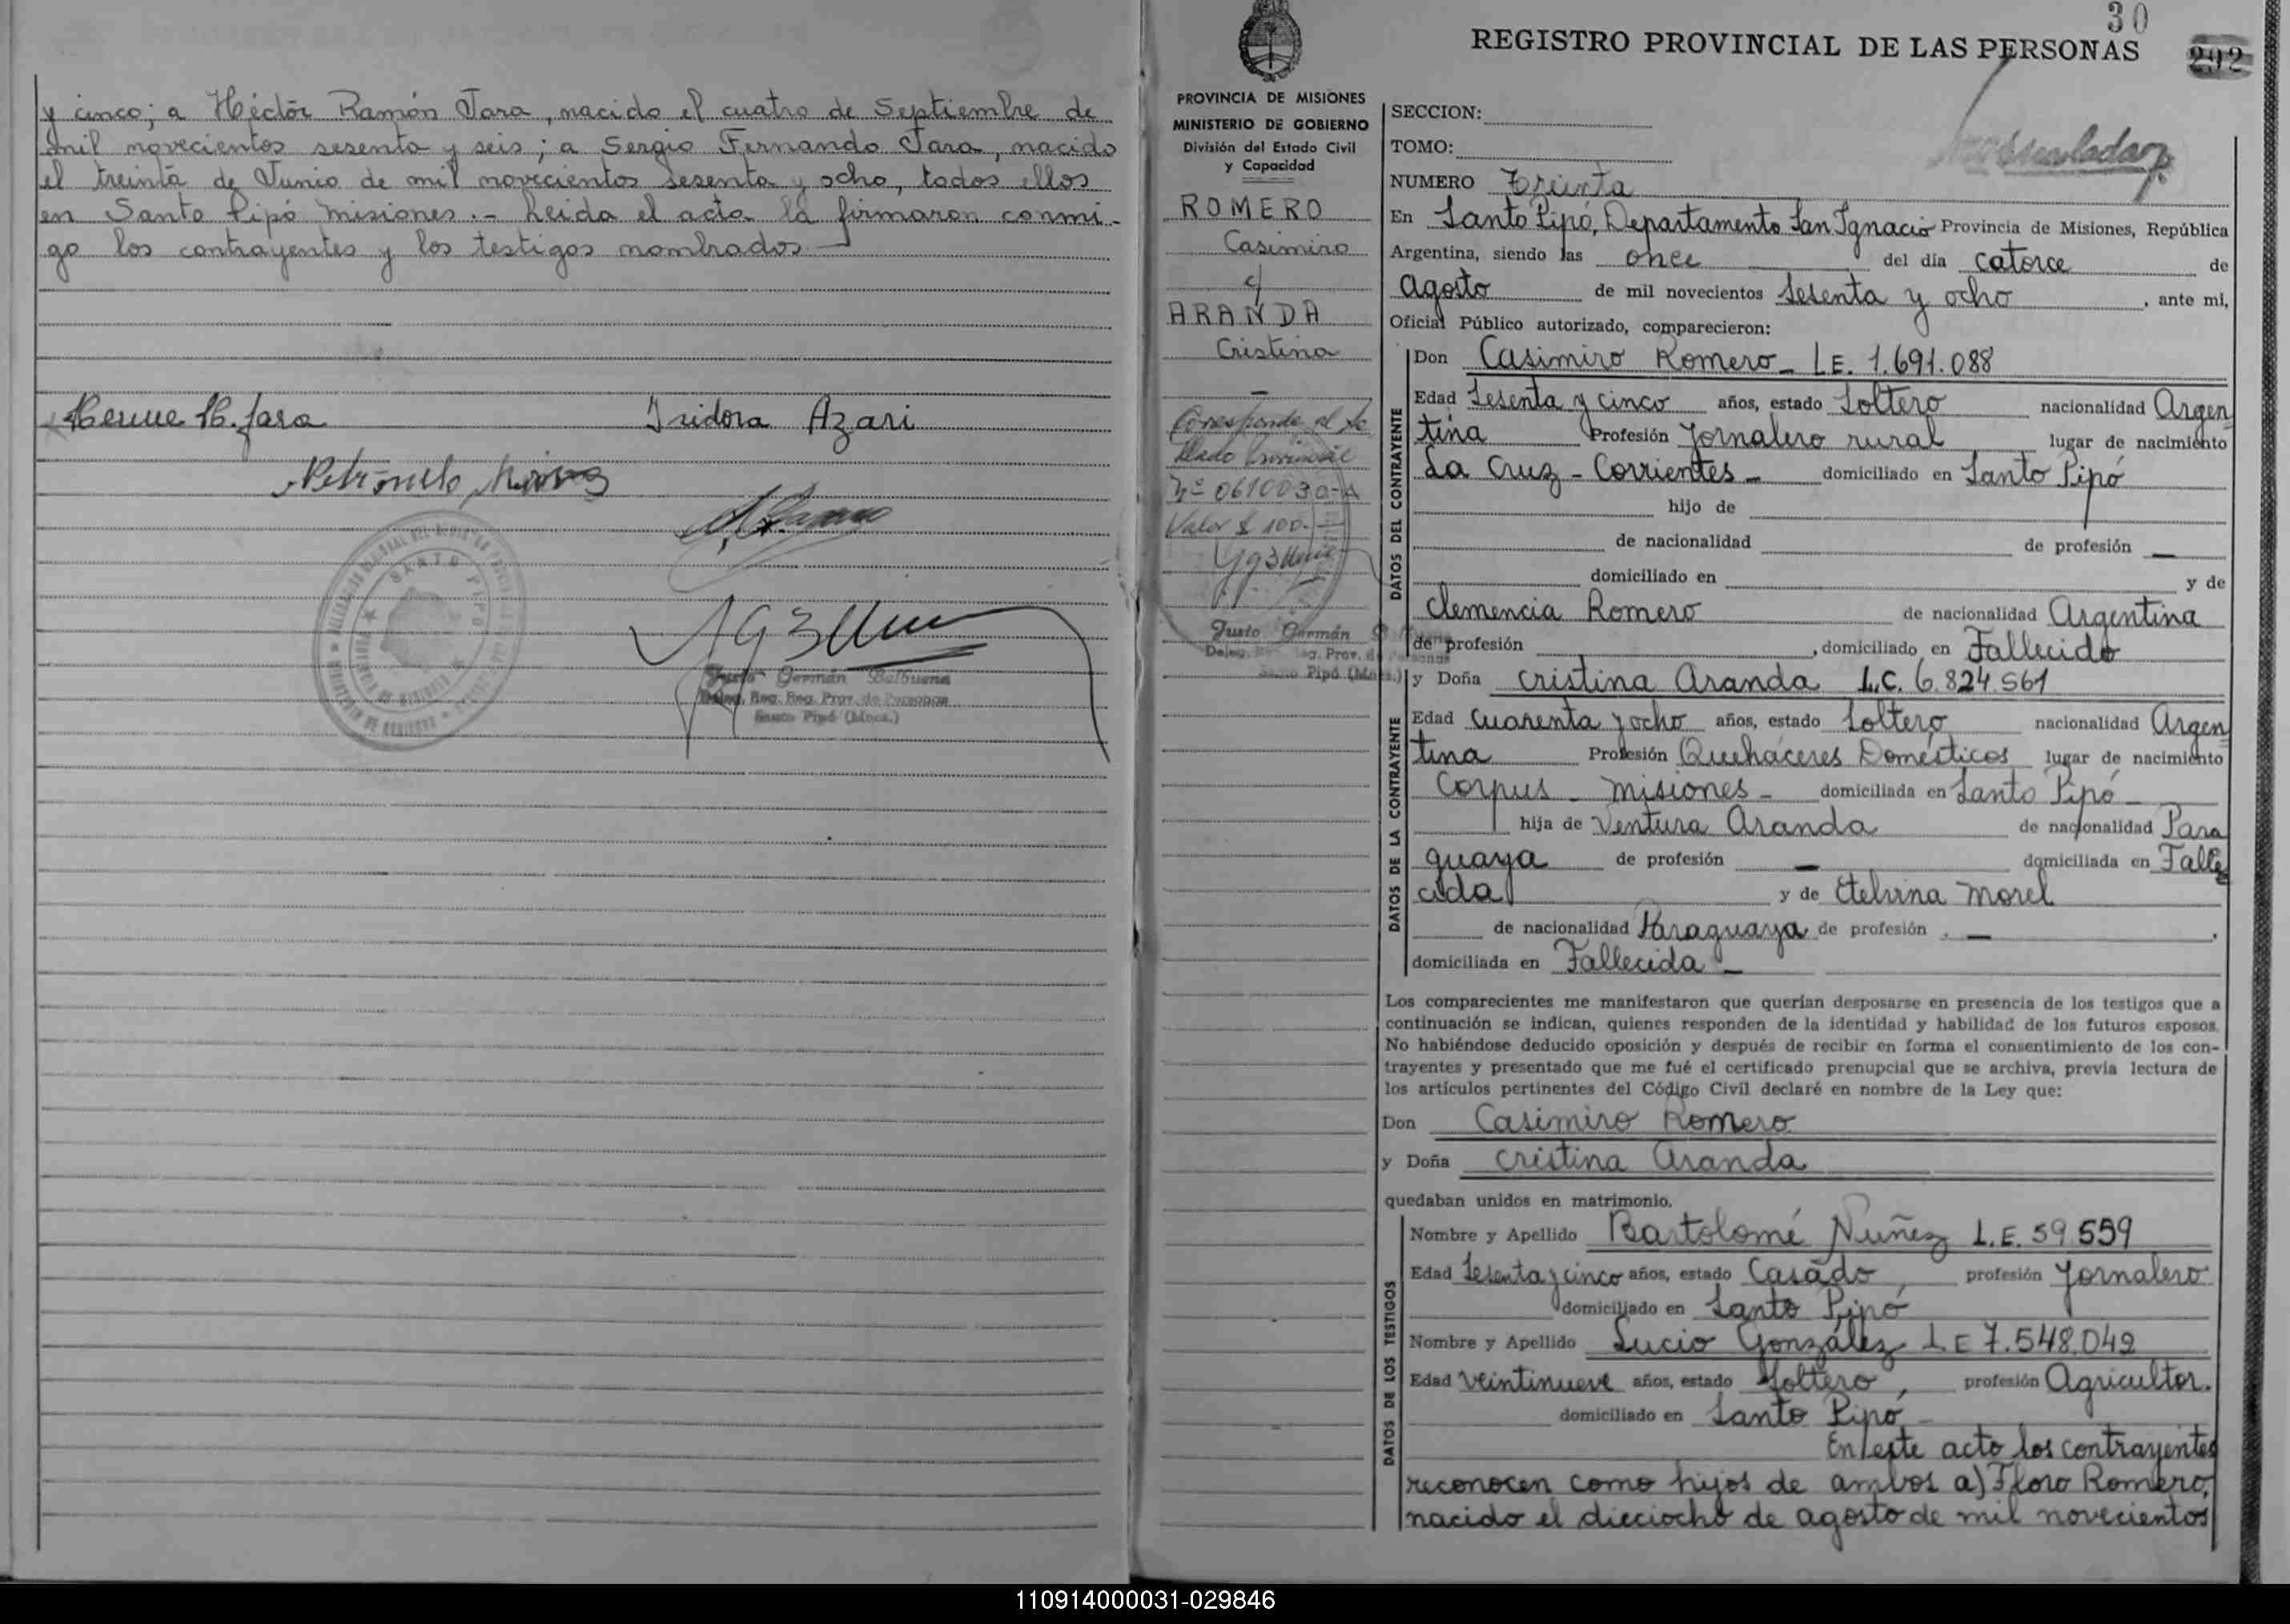 y cinco; a Héctor Ramón Jara, nacido el cuatro de Septiembre de
mil novecientos sesenta y seis; a Sergio Fernando Jara, nacido
el treinta de Junio de mil novecientos sesenta y ocho, todos ellos
en Santo Pipó Misiones.- Leida el acta la firmaron conmi-
go los contrayentes y los testigos nombrados.
Isidora Azari
SANTO PIPO
Justo Germán Balbuena
Deleg. Reg. Reg. Prov. de Personas
Santo Pipó (Mnes.)
30
REGISTRO PROVINCIAL DE LAS PERSONAS
292
PROVINCIA DE MISIONES
MINISTERIO DE GOBIERNO
División del Estado Civil
y Capacidad
ROMERO
Casimiro
c/
ARANDA
Cristina
Corresponde al Se
llado Provincial
Nº 0610030-A
Valor $ 100.-
Justo Germán
Santo Pipó (Mnes.)
SECCION:
TOMO:
NUMERO Treinta
En Santo Pipó, Departamento San Ignacio Provincia de Misiones, República
Argentina, siendo las once del día catorce de
Agosto de mil novecientos sesenta y ocho, ante mi,
Oficial Público autorizado, comparecieron:
DATOS DEL CONTRAYENTE
Don Casimiro Romero - L.E. 1.691.088
Edad Sesenta y cinco años, estado Soltero nacionalidad Argen
tina Profesión Jornalero rural lugar de nacimiento
La Cruz - Corrientes - domiciliado en Santo Pipó
hijo de
de nacionalidad de profesión —
domiciliado en y de
Clemencia Romero de nacionalidad Argentina
de profesión , domiciliado en Fallecida
DATOS DE LA CONTRAYENTE
y Doña Cristina Aranda L.C. 6.824.561
Edad Cuarenta y ocho años, estado Soltero nacionalidad Argen
tina Profesión Quehaceres Domésticos lugar de nacimiento
Corpus - Misiones - domiciliada en Santo Pipó -
hija de Ventura Aranda de nacionalidad Para
guaya de profesión — domiciliada en Falle
cida y de Etelvina Morel
de nacionalidad Paraguaya de profesión — ,
domiciliada en Fallecida -
Los comparecientes me manifestaron que querían desposarse en presencia de los testigos que a
continuación se indican, quienes responden de la identidad y habilidad de los futuros esposos.
No habiéndose deducido oposición y después de recibir en forma el consentimiento de los con-
trayentes y presentado que me fué el certificado prenupcial que se archiva, previa lectura de
los artículos pertinentes del Código Civil declaré en nombre de la Ley que:
Don Casimiro Romero
y Doña Cristina Aranda
quedaban unidos en matrimonio.
DATOS DE LOS TESTIGOS
Nombre y Apellido Bartolomé Nuñez L.E. 59.559
Edad Sesenta y cinco años, estado Casado, profesión Jornalero
domiciliado en Santo Pipó
Nombre y Apellido Lucio González L.E 7.548.049
Edad Veintinueve años, estado Soltero, profesión Agricultor.
domiciliado en Santo Pipó -
En este acto los contrayentes
reconocen como hijos de ambos a) Floro Romero,
nacido el dieciocho de agosto de mil novecientos
110914000031-029846